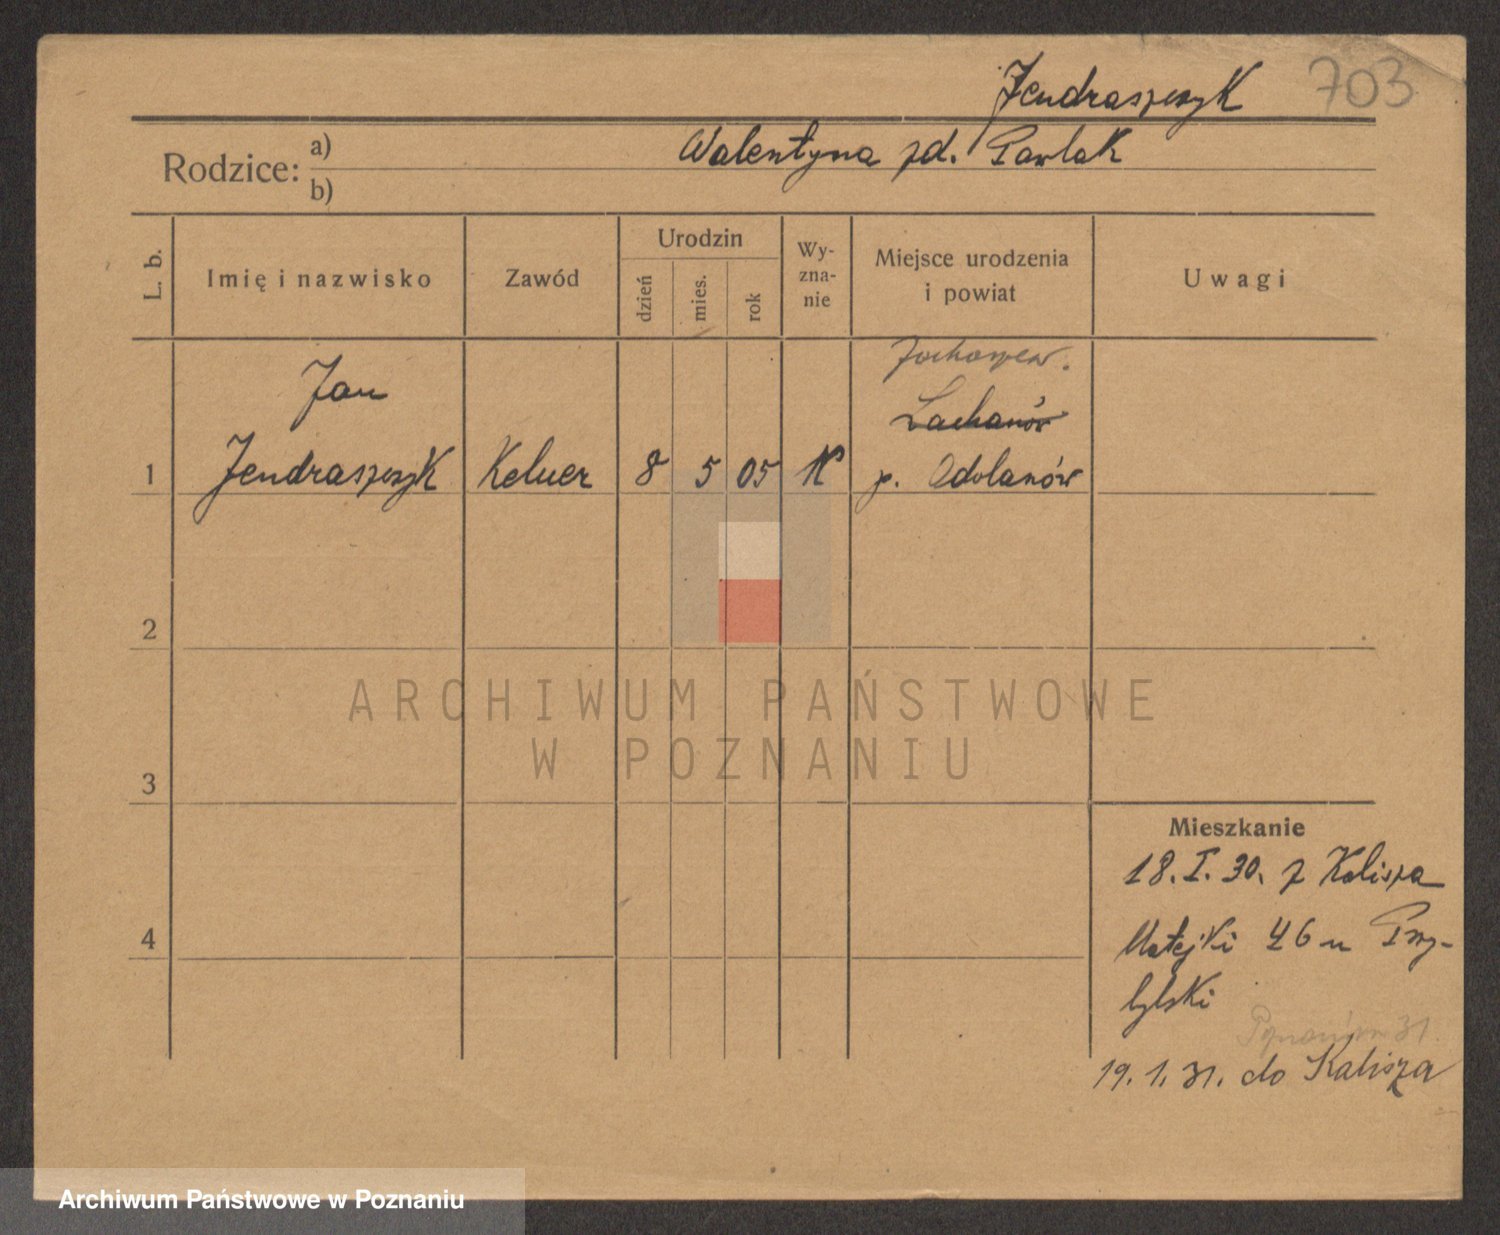 Jendraszczyk 703
Rodzice: a) Walentyna zd. Pawlak
b)
L. b. Imię i nazwisko Zawód Urodzin dzień mies. rok Wy-zna-nie Miejsce urodzenia i powiat Uwagi
Jan
Lachanów
1 Jendraszczyk Kelner 8 5 05 K p. Odolanów
2
3
4
Mieszkanie
18.I.30. z Kalisza
Matejki 46 u Przy-
bylski
31.
19.1.31. do Kalisza
ARCHIWUM PAŃSTWOWE
W POZNANIU
Archiwum Państwowe w Poznaniu